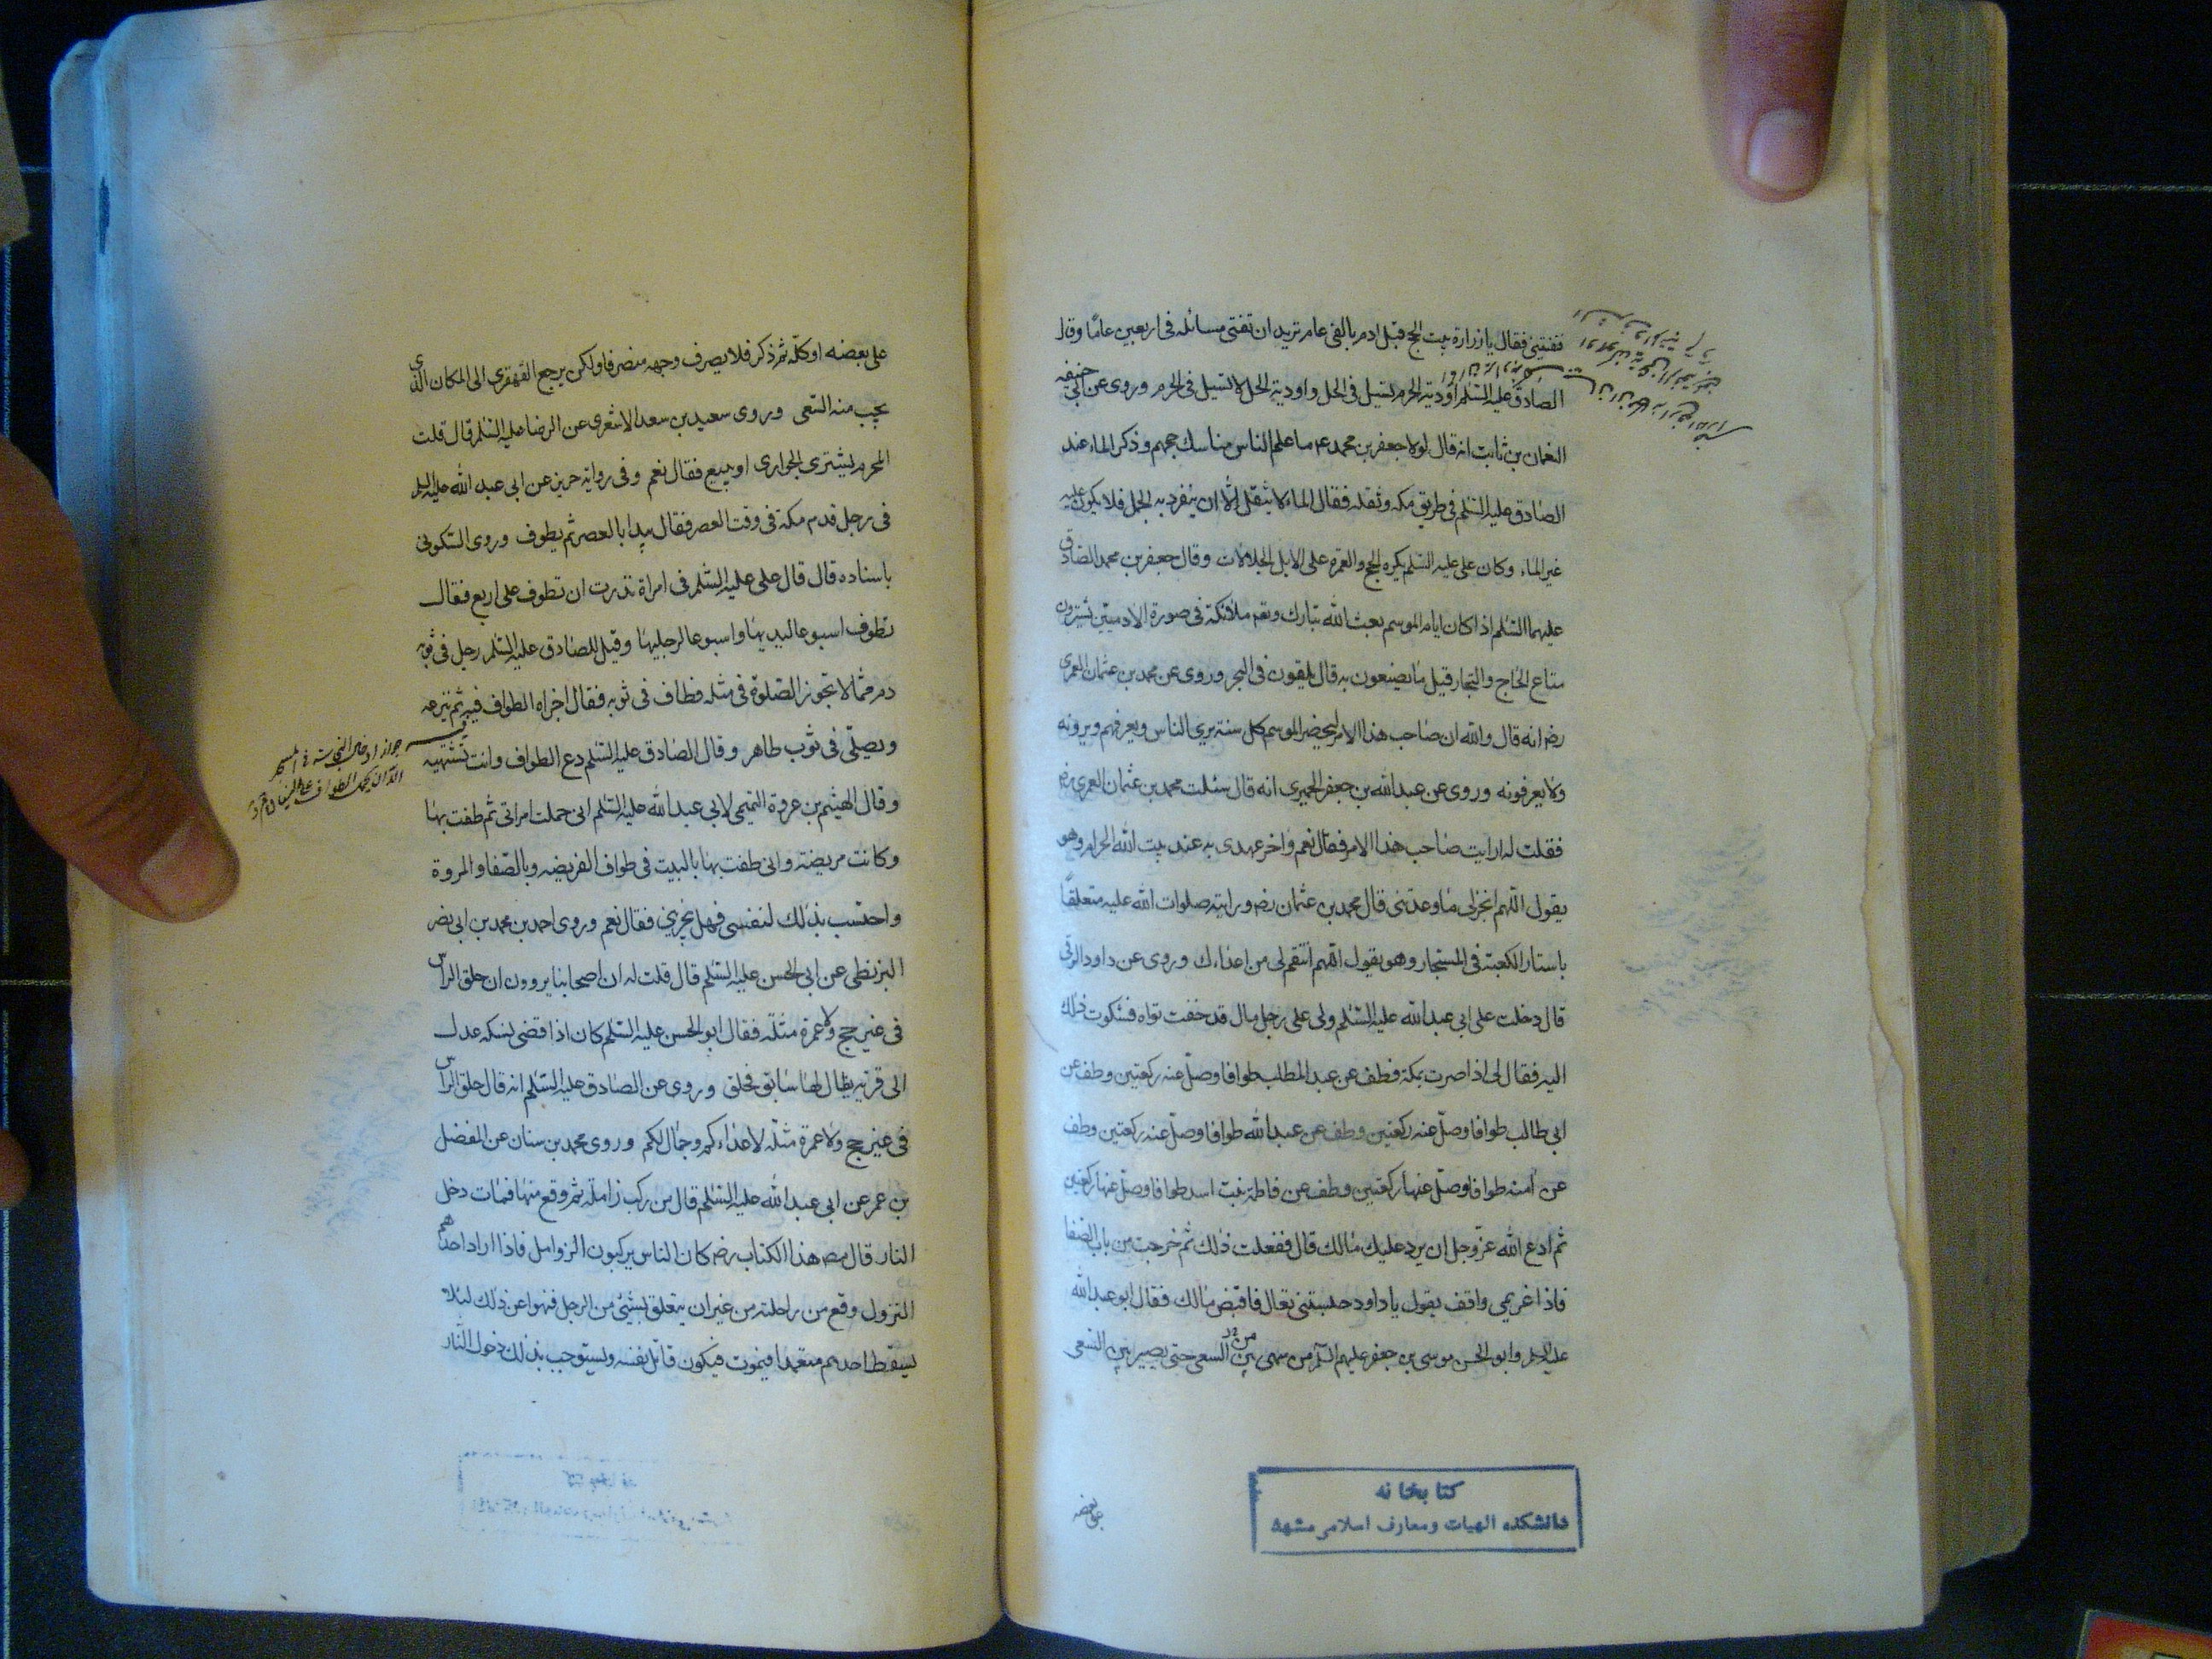 ففتيتني فقال يا زرارة بيت الحج قبل ادم بالفى عام تريد ان تفتى مسائله فى اربعين عاما وقال
الصادق عليه السلم اودية الحرم تسيل فى الحل واودية الحل لا تسيل فى الحرم وروى عن ابي حنيفه
النعمان بن ثابت انه قال لولا جعفر بن محمد ع ما علم الناس مناسك حجهم وذكر الماء عند
الصادق عليه السلم فى طريق مكه وثقله فقال الماء لا يثقل الا ان ينفرد به الجمل فلا يكون عليه
غير الماء وكان على عليه السلم يكره الحج والعمرة على الابل الجلالات وقال جعفر بن محمد الصادق
عليهما السلم اذا كان ايام الموسم بعث الله تبارك وتعم ملائكة فى صورة الادميين يشترون
متاع الحاج والتجار قيل ما يصنعون به قال يلقون فى البحر وروى عن محمد بن عثمان العمرى
رضه انه قال والله ان صاحب هذا الامر ليحضر الموسم كل سنة يرى الناس ويعرفهم ويرونه
ولا يعرفونه وروى عن عبدالله بن جعفر الحميرى انه قال سئلت محمد بن عثمان العمرى رضه
فقلت له ارايت صاحب هذا الامر فقال نعم واخر عهدى به عند بيت الله الحرام وهو
يقول اللهم انجز لى ما وعدتنى قال محمد بن عثمان رضه ورايته صلوات الله عليه متعلقا
باستار الكعبة فى المستجار وهو يقول اللهم انتقم لى من اعداءك وروى عن داود الرقى
قال دخلت على ابى عبدالله عليه السلم ولى على رجل مال قد خفت تواه فشكوت ذلك
اليه فقال لى اذا صرت بمكة فطف عن عبدالمطلب طوافا وصل عنه ركعتين وطف عن
ابى طالب طوافا وصل عنه ركعتين وطف عن عبدالله طوافا وصل عنه ركعتين وطف
عن آمنه طوافا وصل عنها ركعتين وطف عن فاطمة بنت اسد طوافا وصل عنها ركعتين
ثم ادع الله عز وجل ان يرد عليك مالك قال ففعلت ذلك ثم خرجت من باب الصفا
فاذا غريمى واقف يقول يا داود حبستنى تعال فاقبض مالك فقال ابو عبدالله
عليه السلم وابو الحسن موسى بن جعفر عليهم السلم من سهى بين السعى حتى يصير بين السعى
على بعضه
كتابخانه
دانشكده الهيات ومعارف اسلامى مشهد
على بعضه او كله ثم ذكر فلا يصرف وجهه منصرفا ولكن يرجع القهقرى الى المكان الذى
يجب منه السعى وروى سعيد بن سعد الاشعرى عن الرضا عليه السلم قال قلت
المحرم يشترى الجوارى او يبيع فقال نعم وفى رواية حريز عن ابى عبدالله عليه السلم
فى رجل قدم مكة فى وقت العصر فقال يبدا بالعصر ثم يطوف وروى السكونى
باسناده قال قال على عليه السلم فى امراة نذرت ان تطوف على اربع فقال
تطوف اسبوعا ليديها واسبوعا لرجليها وقيل للصادق عليه السلم رجل فى ثوبه
دم مما لا تجوز الصلوة فى مثله فطاف فى ثوبه فقال اجزاه الطواف فيه ثم ينزعه
ويصلى فى ثوب طاهر وقال الصادق عليه السلم دع الطواف وانت تشتهيه
وقال الهيثم بن عروة التميمى لابى عبدالله عليه السلم انى حملت امراتى ثم طفت بها
وكانت مريضة وانى طفت بها بالبيت فى طواف الفريضه وبالصفا والمروة
واحتسب بذلك لنفسى فهل يجزينى فقال نعم وروى احمد بن محمد بن ابى نصر
البزنطى عن ابى الحسن عليه السلم قال قلت له ان اصحابنا يروون ان حلق الراس
فى غير حج ولا عمرة مثلة فقال ابو الحسن عليه السلم كان اذا قضى نسكه عدل
الى قرية يقال لها ساية فحلق وروى عن الصادق عليه السلم انه قال حلق الراس
فى غير حج ولا عمرة مثلة لاعداءكم وجمال لكم وروى محمد بن سنان عن المفضل
بن عمر عن ابى عبدالله عليه السلم قال من ركب زاملة ثم وقع منها فمات دخل
النار قال مص هذا الكتاب رضه كان الناس يركبون الزوامل فاذا اراد احدهم
النزول وقع من راحلته من غير ان يتعلق بشئ من الرحل فنهوا عن ذلك لئلا
يسقط احدهم متعمدا فيموت فيكون قاتل نفسه ويستوجب بذلك دخول النار